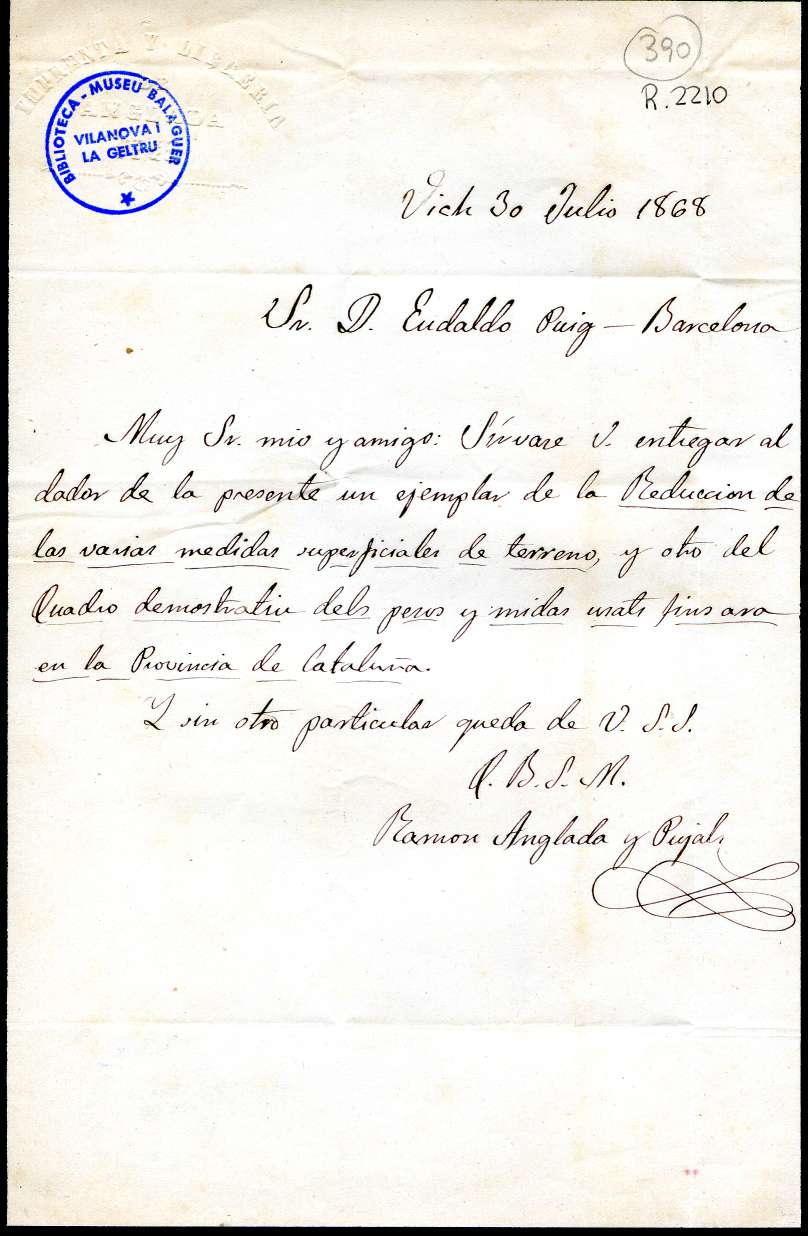 IMPRENTA Y LIBRERIA
ANGLADA
BIBLIOTECA - MUSEU BALAGUER
VILANOVA i
LA GELTRU
390
R. 2210
Vich 30 Julio 1868
Sr. D. Eudaldo Puig — Barcelona
Muy Sr. mio y amigo: Sírvase V. entregar al
dador de la presente un ejemplar de la Reduccion de
las varias medidas superficiales de terreno, y otro del
Quadro demostratiu dels pesos y midas usats fins ara
en la Provincia de Cataluña.
Y sin otro particular queda de V. S. S.
Q. B. S. M.
Ramon Anglada y Pujals